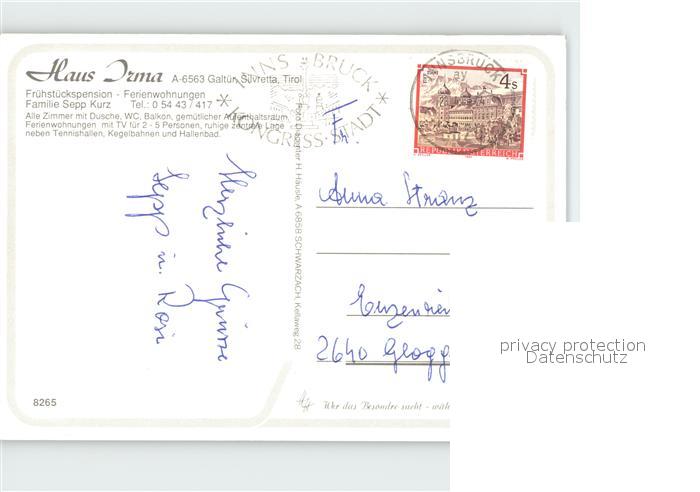 Haus Irma A-6563 Galtür, Silvretta, Tirol
Frühstückspension - Ferienwohnungen
Familie Sepp Kurz Tel.: 0 54 43 / 417
Alle Zimmer mit Dusche, WC, Balkon, gemütlicher Aufenthaltsraum,
Ferienwohnungen mit TV für 2 - 5 Personen, ruhige zentrale Lage
neben Tennishallen, Kegelbahnen und Hallenbad.
INNSBRUCK
KONGRESS-STADT
INNSBRUCK
4 S
REPUBLIK ÖSTERREICH
H. Häusle, A 6858 SCHWARZACH, Kellaweg 28
Herzliche Grüsse
Sepp u. Rosi
Anna Stranz
Enzenrei
2640 Glogg
8265
Wer das Besondre sucht - wäh
privacy protection
Datenschutz